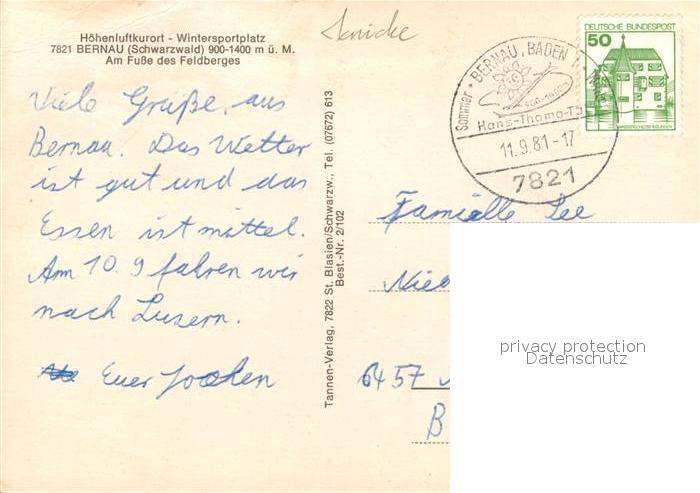 Höhenluftkurort - Wintersportplatz
7821 BERNAU (Schwarzwald) 900-1400 m ü. M.
Am Fuße des Feldberges
Viele Grüße, aus
Bernau. Das Wetter
ist gut und das
Essen ist mittel.
Am 10. 9 fahren wir
nach Luzern.
Euer Jochen
Tannen-Verlag, 7822 St. Blasien/Schwarzw., Tel. (07672) 613
Best.-Nr. 2/102
DEUTSCHE BUNDESPOST
50
Sommer • BERNAU, BADEN
900-1400m
Hans-Thoma-
11.9.81-17
7821
Famielle Lee
6457
B
privacy protection
Datenschutz